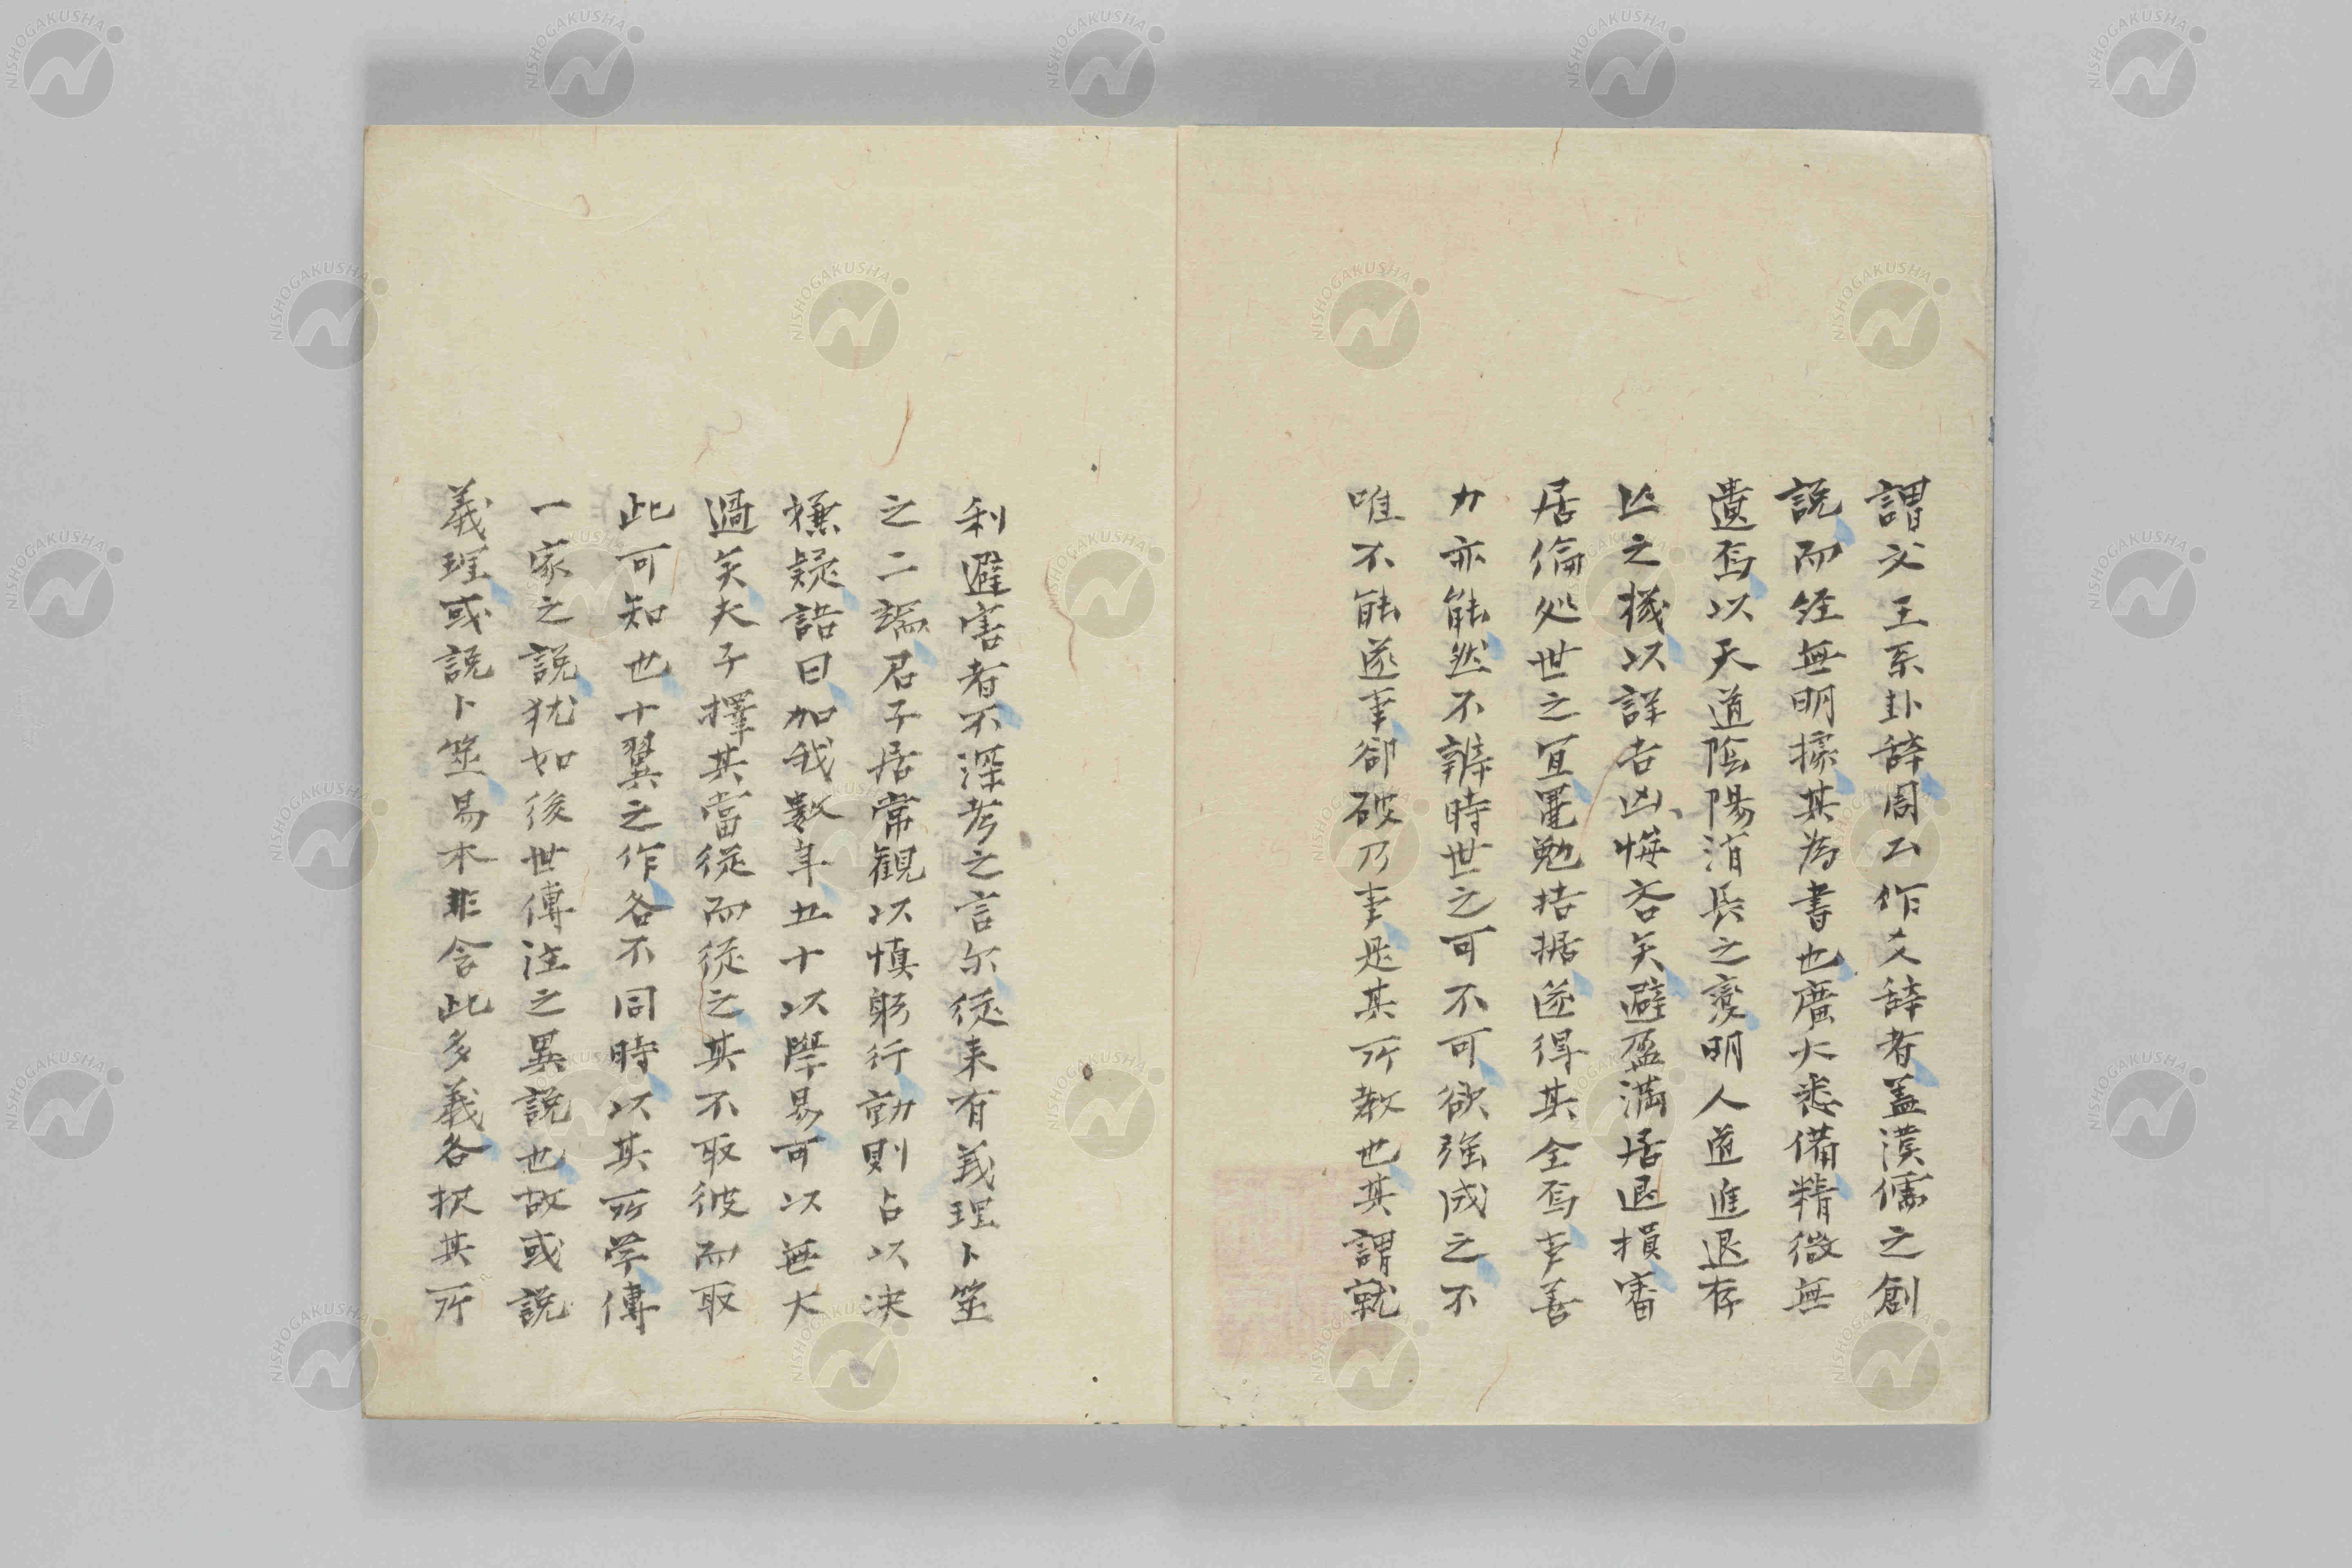 謂文王系卦辞周公作爻辞者蓋漢儒之創
説而経無明據其為書也廣大悉備精微無
遺焉以天道陰陽消長之変明人道進退存
亡之機以詳吉凶悔吝矣避盈満居退損審
居倫処世之宜黽勉拮据遂得其全焉吏善
力亦能然不辨時世之可不可欲强成之不
唯不能遂事卻破乃事是其所教也其謂就
利避害者不深考之言尓従来有義理卜筮
之二端君子居常観以慎躬行動則占以决
嫌疑語曰加我數年五十以學易可以無大
過矣夫子擇其當従而従之其不取彼而取
此可知也十翼之作各不同時以其所学傳
一家之説猶如後世傳注之異説也故或説
義理或説卜筮易本非含此多義各択其所
NISHOGAKUSHA